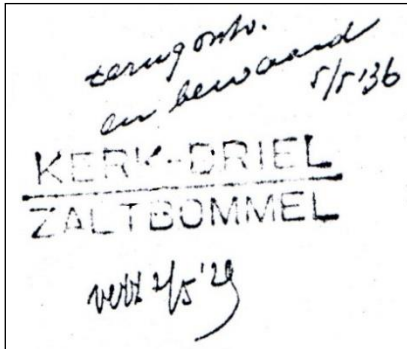 terug ontv.
en bewaard
5/5 '36
KERK-DRIEL
ZALTBOMMEL
verz 2/5 '29